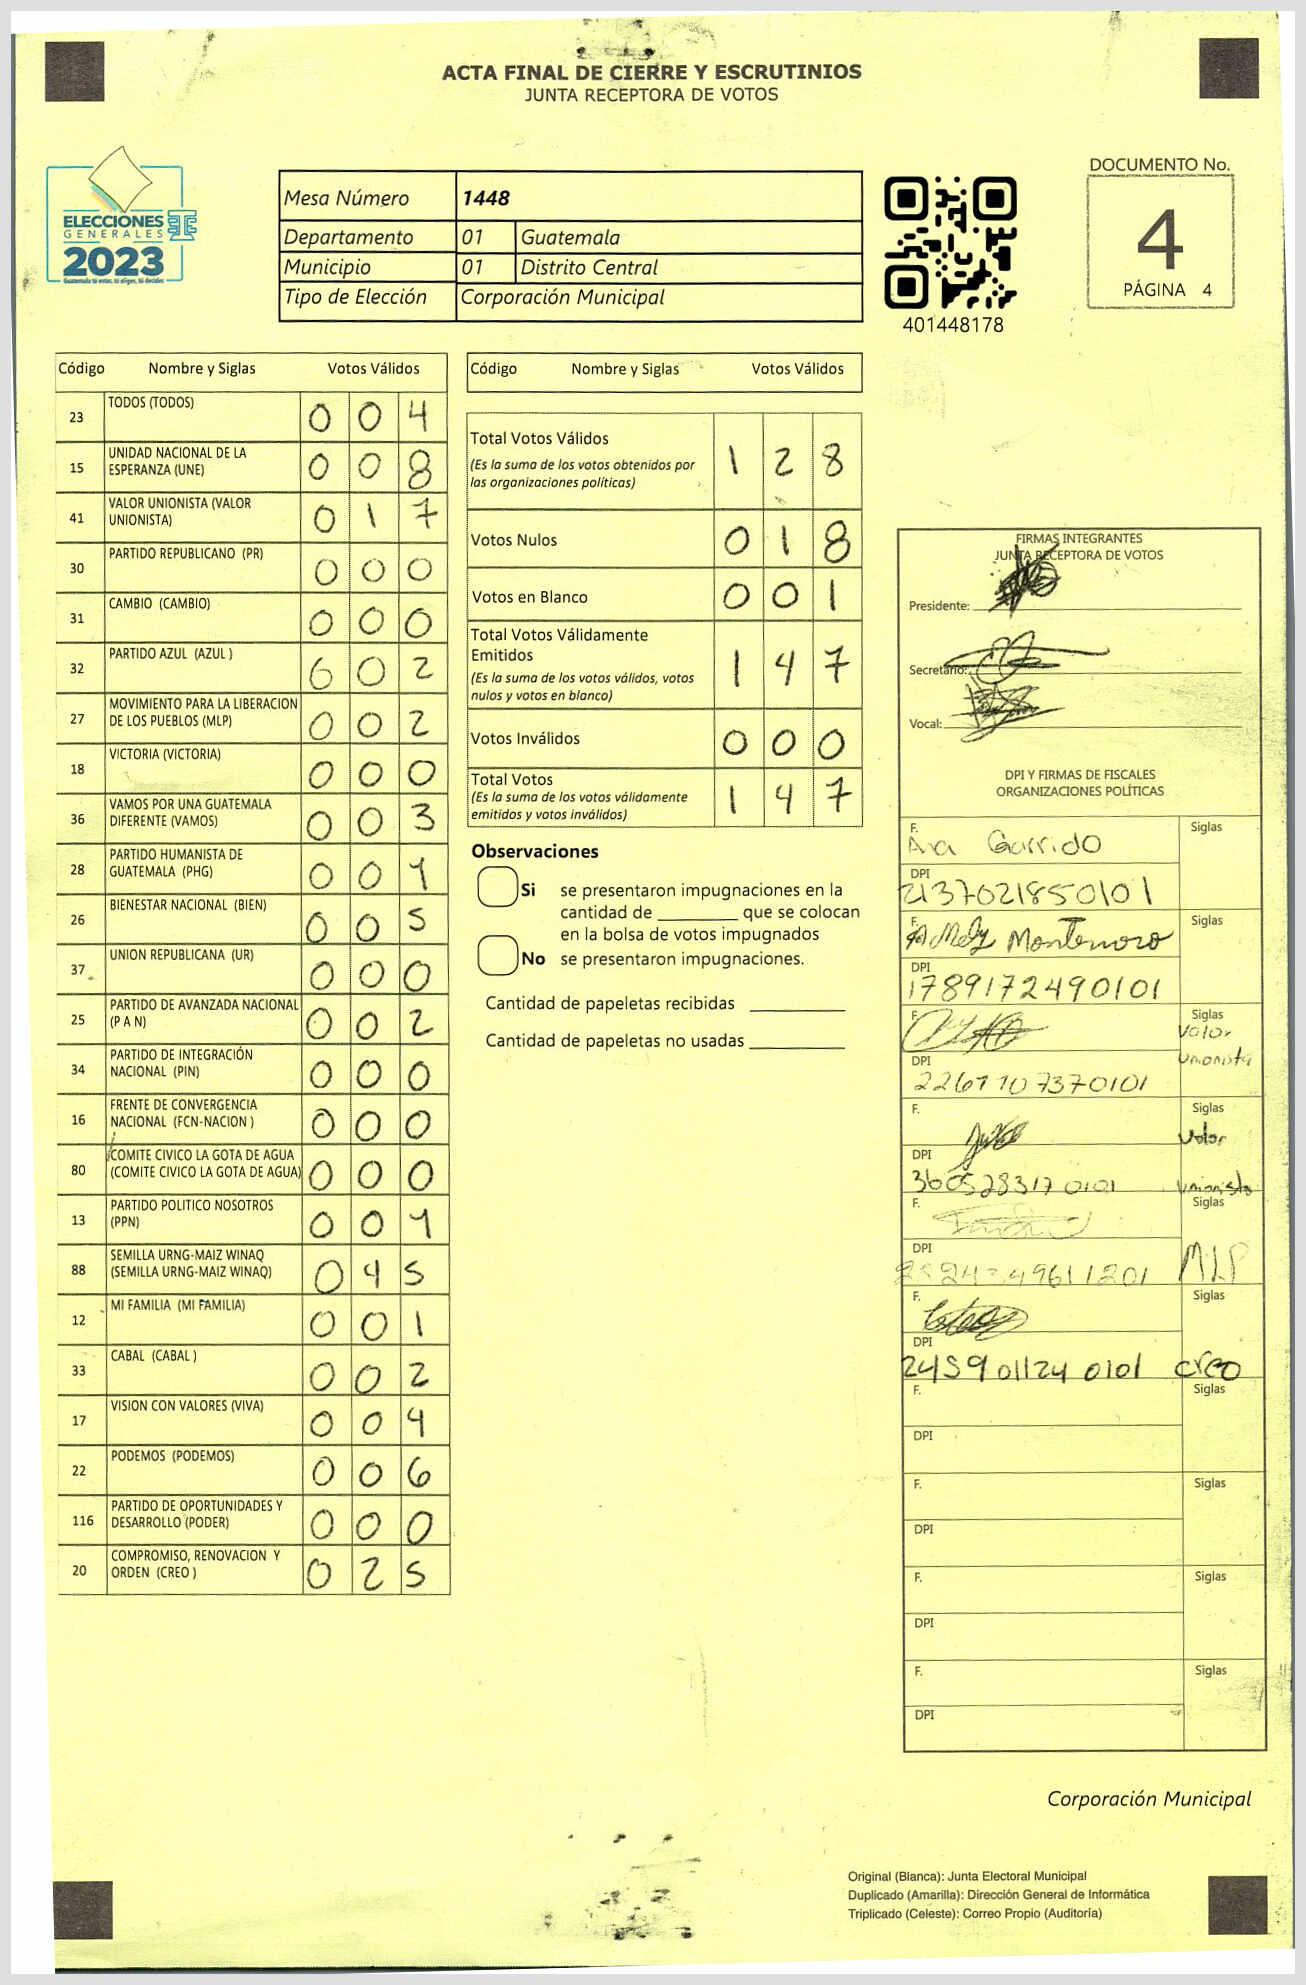 ACTA FINAL DE CIERRE Y ESCRUTINIOS
JUNTA RECEPTORA DE VOTOS
ELECCIONES
GENERALES
2023
Guatemala tú eres, tú eliges, tú decides
Mesa Número 1448
Departamento 01 Guatemala
Municipio 01 Distrito Central
Tipo de Elección Corporación Municipal
401448178
DOCUMENTO No.
4
PÁGINA 4
Código Nombre y Siglas Votos Válidos
23 TODOS (TODOS) 0 0 4
15 UNIDAD NACIONAL DE LA ESPERANZA (UNE) 0 0 8
41 VALOR UNIONISTA (VALOR UNIONISTA) 0 1 7
30 PARTIDO REPUBLICANO (PR) 0 0 0
31 CAMBIO (CAMBIO) 0 0 0
32 PARTIDO AZUL (AZUL ) 6 0 2
27 MOVIMIENTO PARA LA LIBERACION DE LOS PUEBLOS (MLP) 0 0 2
18 VICTORIA (VICTORIA) 0 0 0
36 VAMOS POR UNA GUATEMALA DIFERENTE (VAMOS) 0 0 3
28 PARTIDO HUMANISTA DE GUATEMALA (PHG) 0 0 1
26 BIENESTAR NACIONAL (BIEN) 0 0 5
37 UNION REPUBLICANA (UR) 0 0 0
25 PARTIDO DE AVANZADA NACIONAL (P A N) 0 0 2
34 PARTIDO DE INTEGRACIÓN NACIONAL (PIN) 0 0 0
16 FRENTE DE CONVERGENCIA NACIONAL (FCN-NACION ) 0 0 0
80 COMITE CIVICO LA GOTA DE AGUA (COMITE CIVICO LA GOTA DE AGUA) 0 0 0
13 PARTIDO POLITICO NOSOTROS (PPN) 0 0 1
88 SEMILLA URNG-MAIZ WINAQ (SEMILLA URNG-MAIZ WINAQ) 0 4 5
12 MI FAMILIA (MI FAMILIA) 0 0 1
33 CABAL (CABAL ) 0 0 2
17 VISION CON VALORES (VIVA) 0 0 4
22 PODEMOS (PODEMOS) 0 0 6
116 PARTIDO DE OPORTUNIDADES Y DESARROLLO (PODER) 0 0 0
20 COMPROMISO, RENOVACION Y ORDEN (CREO ) 0 2 5
Código Nombre y Siglas Votos Válidos
Total Votos Válidos 1 2 8
(Es la suma de los votos obtenidos por
las organizaciones políticas)
Votos Nulos 0 1 8
Votos en Blanco 0 0 1
Total Votos Válidamente
Emitidos 1 4 7
(Es la suma de los votos válidos, votos
nulos y votos en blanco)
Votos Inválidos 0 0 0
Total Votos 1 4 7
(Es la suma de los votos válidamente
emitidos y votos inválidos)
Observaciones
Si se presentaron impugnaciones en la
cantidad de ________ que se colocan
en la bolsa de votos impugnados
No se presentaron impugnaciones.
Cantidad de papeletas recibidas
Cantidad de papeletas no usadas
FIRMAS INTEGRANTES
JUNTA RECEPTORA DE VOTOS
Presidente:
Secretario:
Vocal:
DPI Y FIRMAS DE FISCALES
ORGANIZACIONES POLÍTICAS
F. Ana Garrido Siglas
DPI 2137021850101
F. Montenoro Siglas
DPI 1789172490101
F. Siglas
Valor
Unionista
DPI
F. Siglas
Valor
DPI 3605283170101 Unionista
F. Siglas
DPI MLP
F. Siglas
DPI 2459011240101 creo
F. Siglas
DPI
F. Siglas
DPI
F. Siglas
DPI
F. Siglas
DPI
Corporación Municipal
Original (Blanca): Junta Electoral Municipal
Duplicado (Amarilla): Dirección General de Informática
Triplicado (Celeste): Correo Propio (Auditoría)